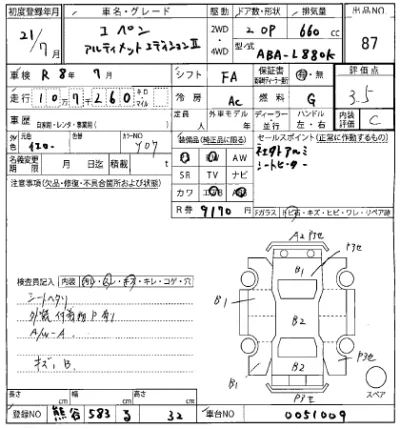 初度登録年月 車名・グレード 駆動 ドア数・形状 排気量 出品NO
21/7月 コペン 2WD・4WD 2 OP 660 cc 87
アルティメットエディションII 型/式 ABA-L880K
車検 R8年7月 シフト FA 保証書 有・無 評価点
走行 107260 キロ マイル 冷房 AC 燃料 G 3.5
車歴 自家用・レンタ・事業用( ) 定員 人 外車モデル 年 ディーラー・並行 ハンドル 左・右 内装評価 C
元色 イエロー 色替 カラーNO Y07 装備品(純正品に限る) セールスポイント(正常に作動するもの)
名義変更期限 月 日迄 積載 t SR TV ナビ シートヒーター
注意事項(欠品・修復・不具合箇所および状態) カワ エアB
R券 9170 円 Fガラス トビ石・キズ・ヒビ・ワレ・リペア跡
A2 P3セ
B1 P3セ
検査員記入 内装 汚レ・スレ・キズ・キレ・コゲ・穴
シートヘタリ
B1 B2
A/W-A
キズ、B
B2 P3セ
B1 P3セ スペア
長さ cm 幅 cm 高さ cm
登録NO 熊谷 583 る 32 車台NO 0051009